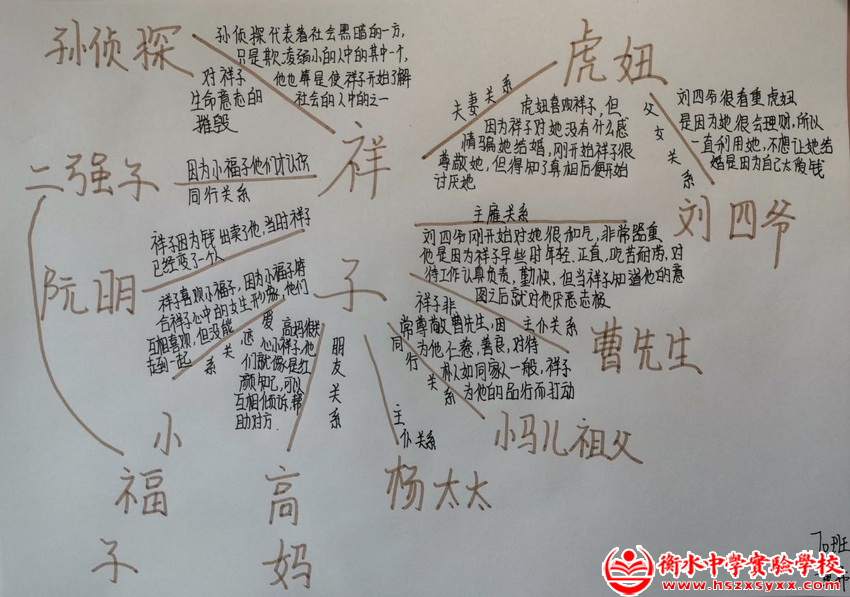 孙侦探
孙侦探代表着社会黑暗的一方,
只是欺凌弱小的人中的其中一个,
他也算是使祥子开始了解
社会的人中的之一
对祥子
生命意志的
摧毁
虎妞
夫妻关系
虎妞喜欢祥子,但
因为祥子对她没有什么感
情骗她结婚,刚开始祥子很
尊敬她,但得知了真相后便开始
讨厌她
父女关系
刘四爷很看重虎妞
是因为她很会理财,所以
一直利用她,不想让她结
婚是因为自己太爱钱
刘四爷
祥
子
二强子
因为小福子他们才认识
同行关系
主雇关系
刘四爷刚开始对她很和气,非常器重
他是因为祥子早些时年轻、正直,吃苦耐劳,对
待工作认真负责,勤快,但当祥子知道他的意
图之后就对他厌恶至极
阮明
祥子因为钱出卖了他,当时祥子
已经变了个人
祥子喜欢小福子,因为小福子符
合祥子心中的女生形象,他们
互相喜欢,但没能
在到一起
恋爱关系
小
福
子
高妈很关
心小祥子他
们就像是红
颜知己,可以
互相倾诉,帮
助对方.
朋友关系
高
妈
主仆关系
杨太太
同行关系
小马儿祖父
祥子非
常尊敬曹先生,因
为他仁慈,善良,对待
祥子
为他的品行而打动
主仆关系
曹先生
衡水中学实验学校
www.hszxsyxx.com